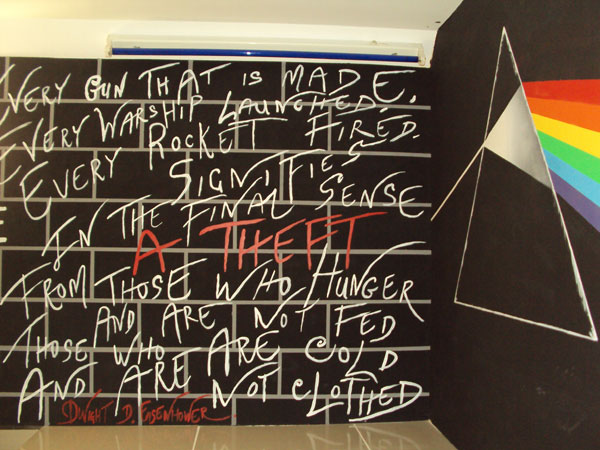 EVERY GUN THAT IS MADE.
EVERY WARSHIP LAUNCHED.
EVERY ROCKET FIRED.
SIGNIFIES
IN THE FINAL SENSE
A THEFT
FROM THOSE WHO HUNGER
AND ARE NOT FED
THOSE WHO ARE COLD
AND ARE NOT CLOTHED
DWIGHT D. EISENHOWER